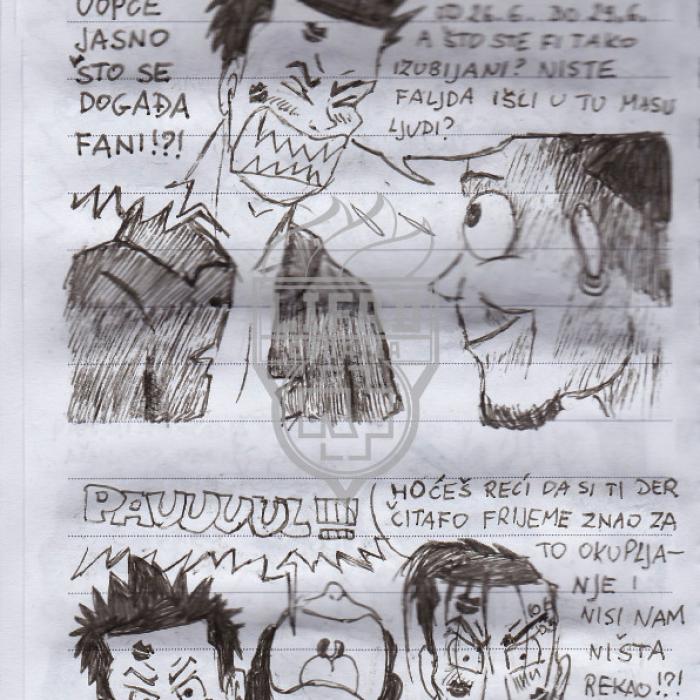 UOPĆE
JASNO
ŠTO SE
DOGAĐA
FANI!?!
OD 26.6. DO 29.6.
A ŠTO STE FI TAKO
IZUBIJANI? NISTE
FALJDA IŠLI U TU MASU
LJUDI?
PAUUUUUL!!!
HOĆEŠ REĆI DA SI TI DER
ČITAFO FRIJEME ZNAO ZA
TO OKUPLJA-
NJE I
NISI NAM
NIŠTA
REKAO!?!